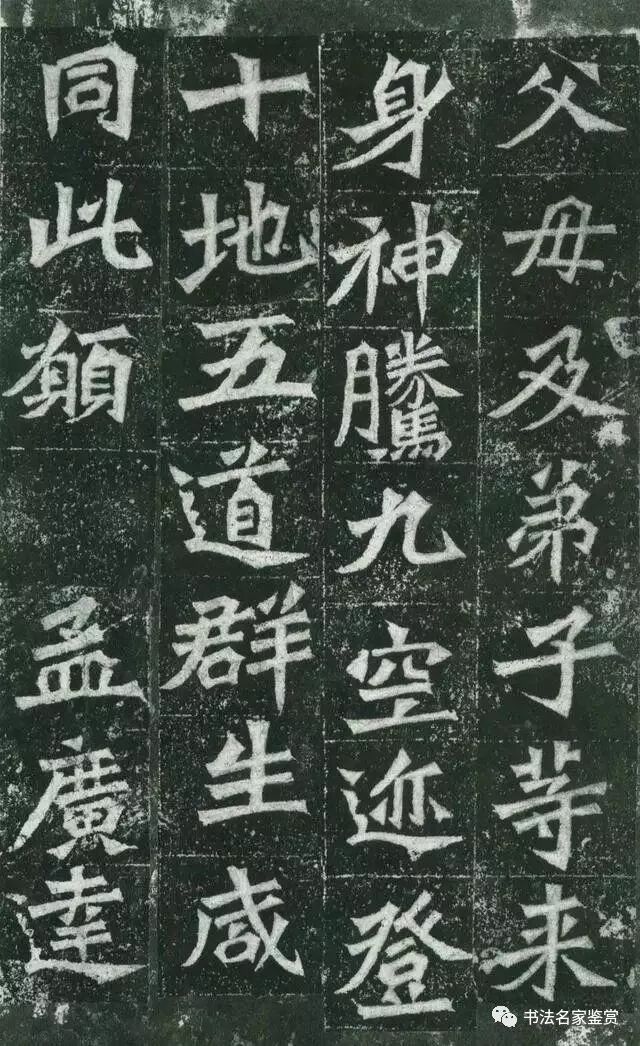 父母及弟子等来
身神騰九空迹登
十地五道群生咸
同此願 孟廣達
书法名家鉴赏